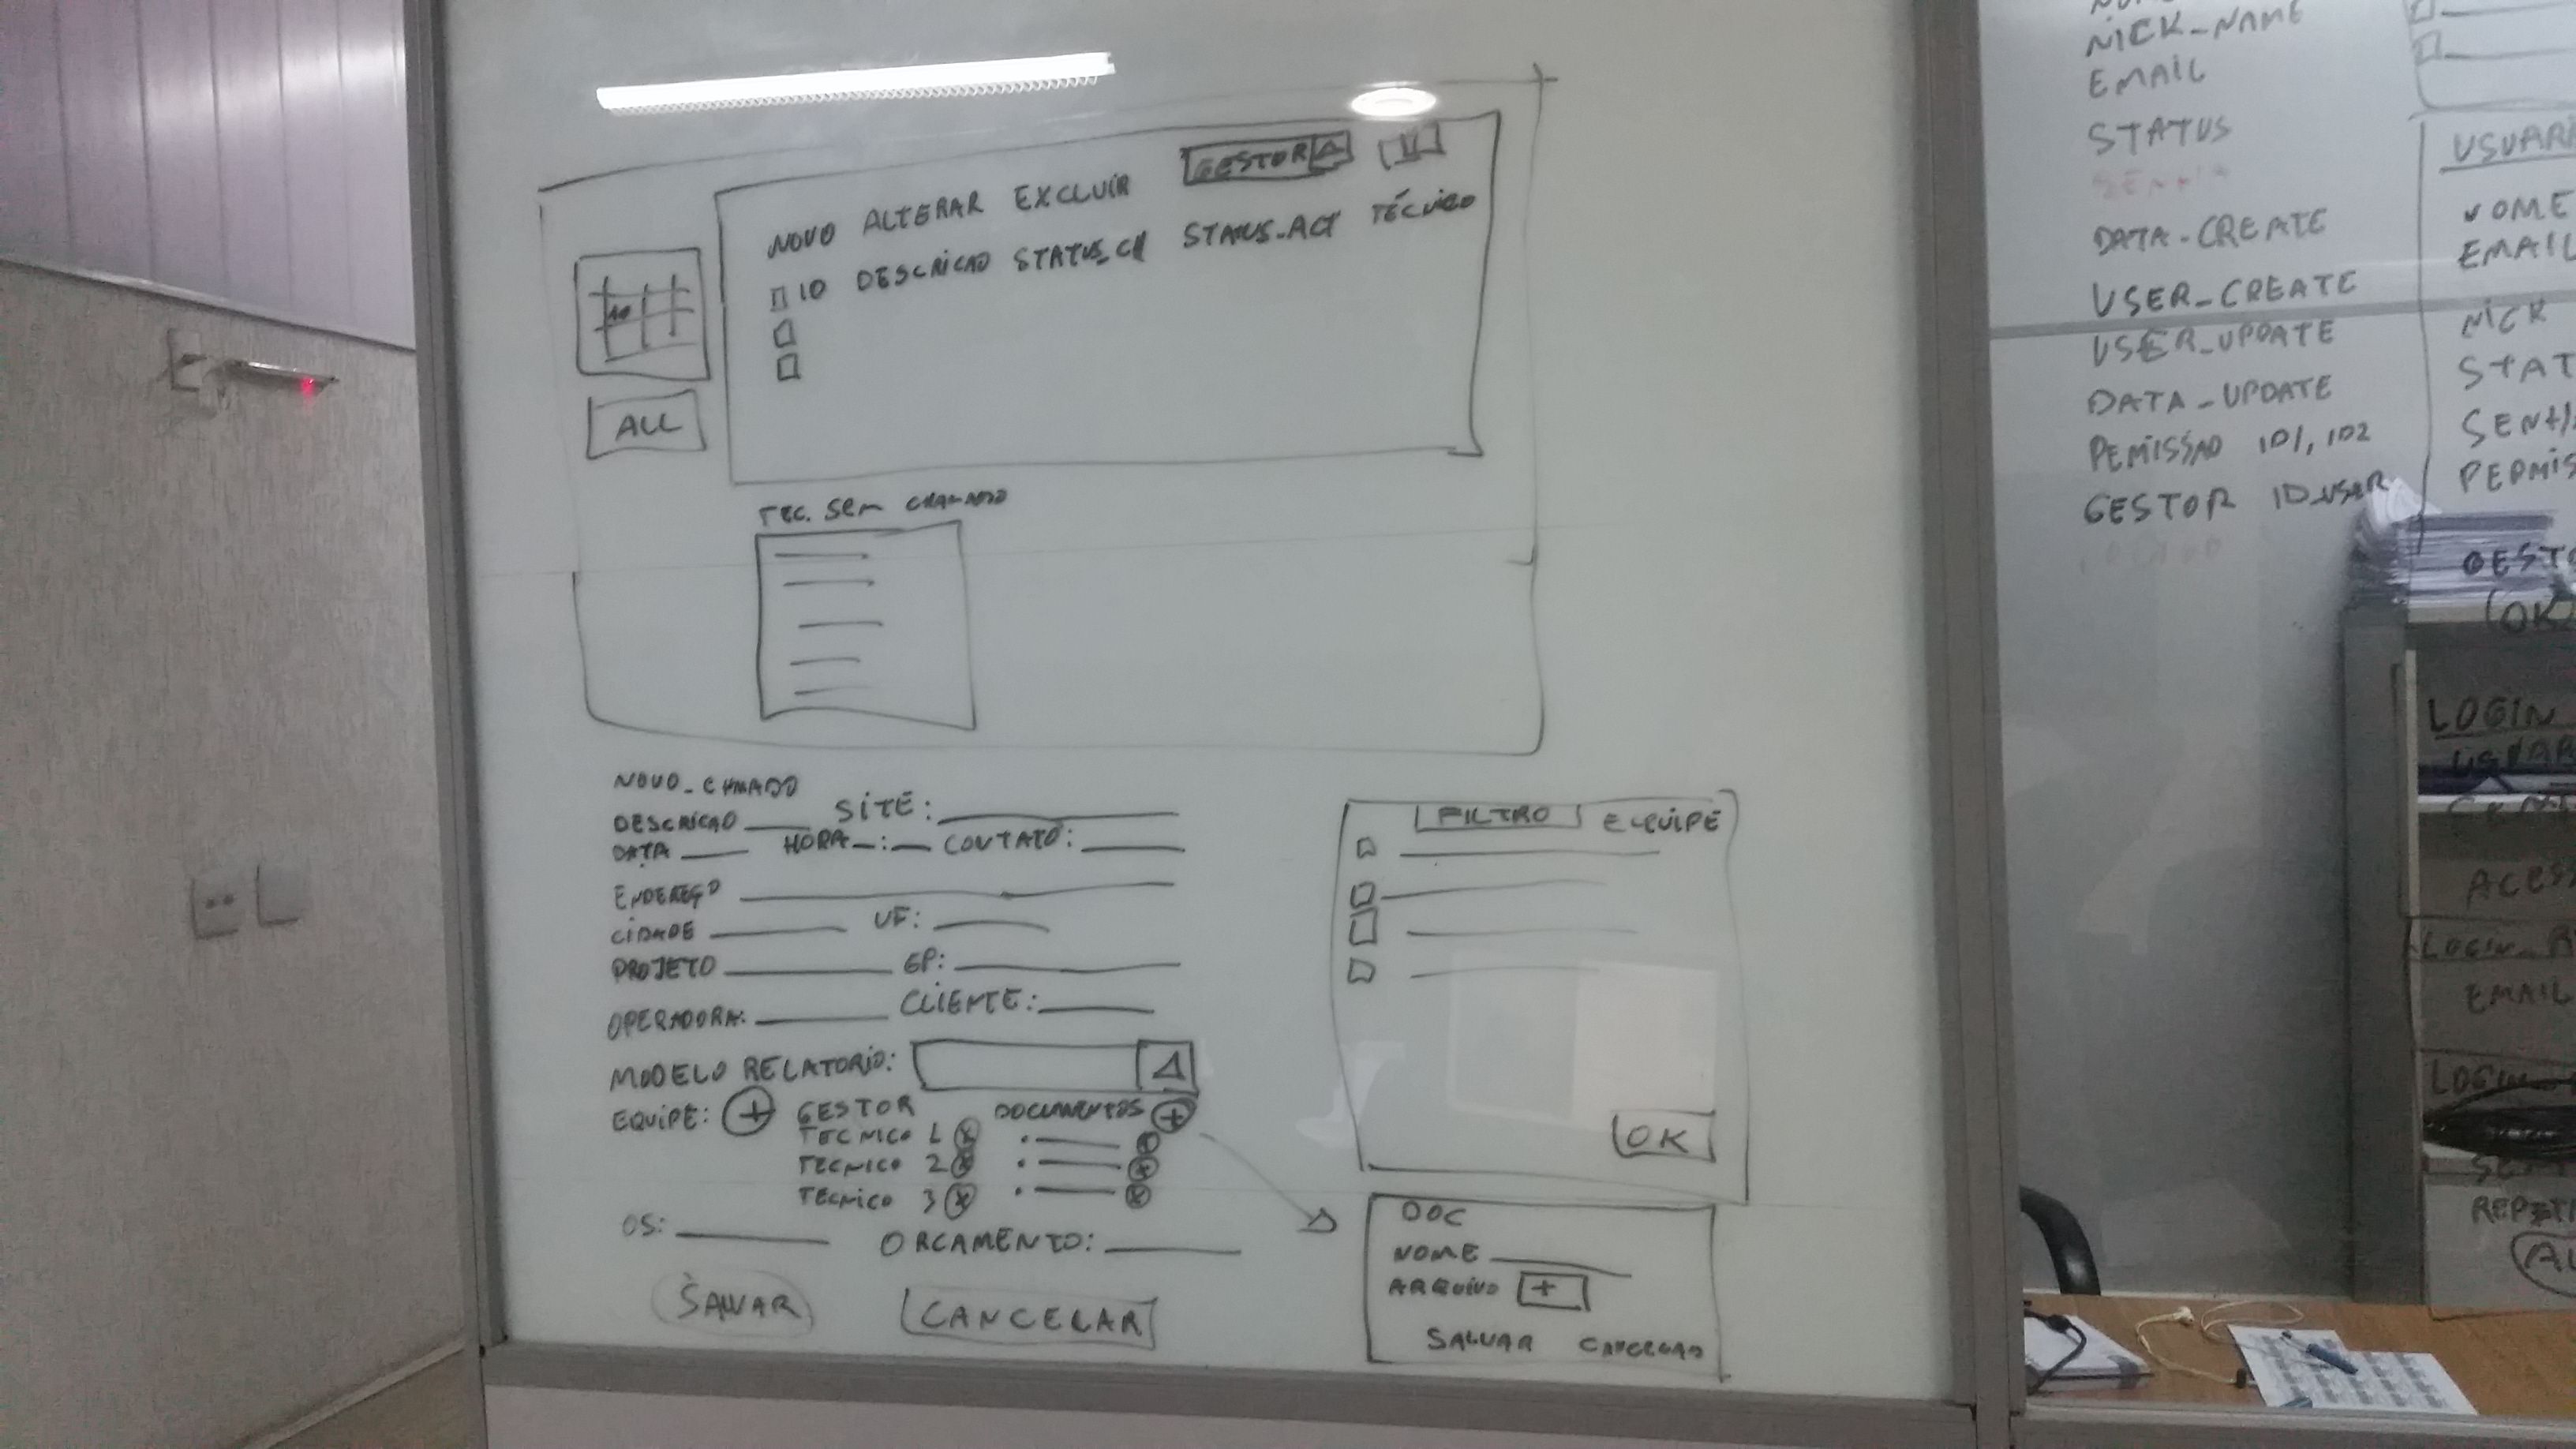 GESTOR
NOVO ALTERAR EXCLUIR
ID DESCRICAO STATUS_CH STATUS_ACT TÉCNICO
10
ALL
TEC. SEM CHAMADO
NOVO_CHMADO
DESCRICAO SITE:
DATA HORA : CONTATO:
ENDEREÇO
CIDADE UF:
PROJETO GP:
OPERADORA: CLIENTE:
MODELO RELATORIO:
EQUIPE: + GESTOR DOCUMENTOS +
TECNICO 1 X
TECNICO 2 X
TECNICO 3 X
OS: ORCAMENTO:
SALVAR CANCELAR
FILTRO EQUIPE
OK
DOC
NOME
ARQUIVO +
SALVAR CANCELAR
NICK_NAME
EMAIL
STATUS
SENHA
DATA-CREATE
USER_CREATE
USER_UPDATE
DATA_UPDATE
PEMISSÃO ID1, ID2
GESTOR ID_USER
USUAR
NOME
EMAIL
NICK
STAT
SENH
PERMIS
GEST
OK
LOGIN
USUAR
ACESS
LOGIN_R
EMAIL
LOGIN
REPETI